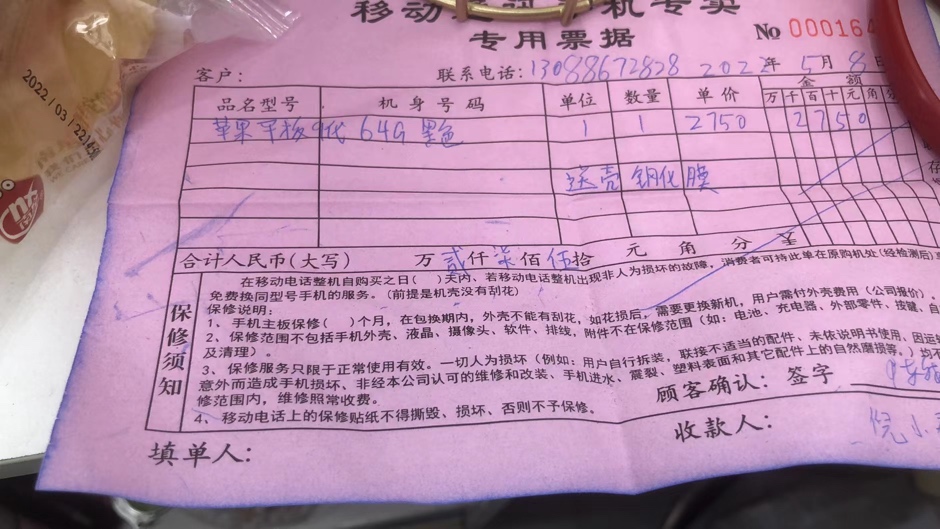 移动电话手机专卖
专用票据
No 000164
客户： 联系电话：13088672828 2022年5月8日
品名型号 机身号码 单位 数量 单价 金额
万千百十元角分
苹果平板9代 64G 黑色 1 1 2750 2750
送壳 钢化膜
合计人民币(大写) 万贰仟柒佰伍拾 元 角 分 ￥
保修须知
在移动电话整机自购买之日( )天内、若移动电话整机出现非人为损坏的故障，消费者可持此单在原购机处(经检测后)
免费换同型号手机的服务。(前提是机壳没有刮花)
保修说明：
1、手机主板保修( )个月，在包换期内，外壳不能有刮花，如花损后，需要更换新机，用户需付外壳费用(公司报价)。
2、保修范围不包括手机外壳、液晶、摄像头、软件、排线，附件不在保修范围(如：电池、充电器、外部零件、按键、自
及清理)。
3、保修服务只限于正常使用有效。一切人为损坏(例如：用户自行拆装，联接不适当的配件、未依说明书使用、因运输
意外而造成手机损坏、非经本公司认可的维修和改装、手机进水、震裂、塑料表面和其它配件上的自然磨损等。)均不
修范围内，维修照常收费。
4、移动电话上的保修贴纸不得撕毁、损坏、否则不予保修。
顾客确认：签字
填单人： 收款人：
2022/03/22